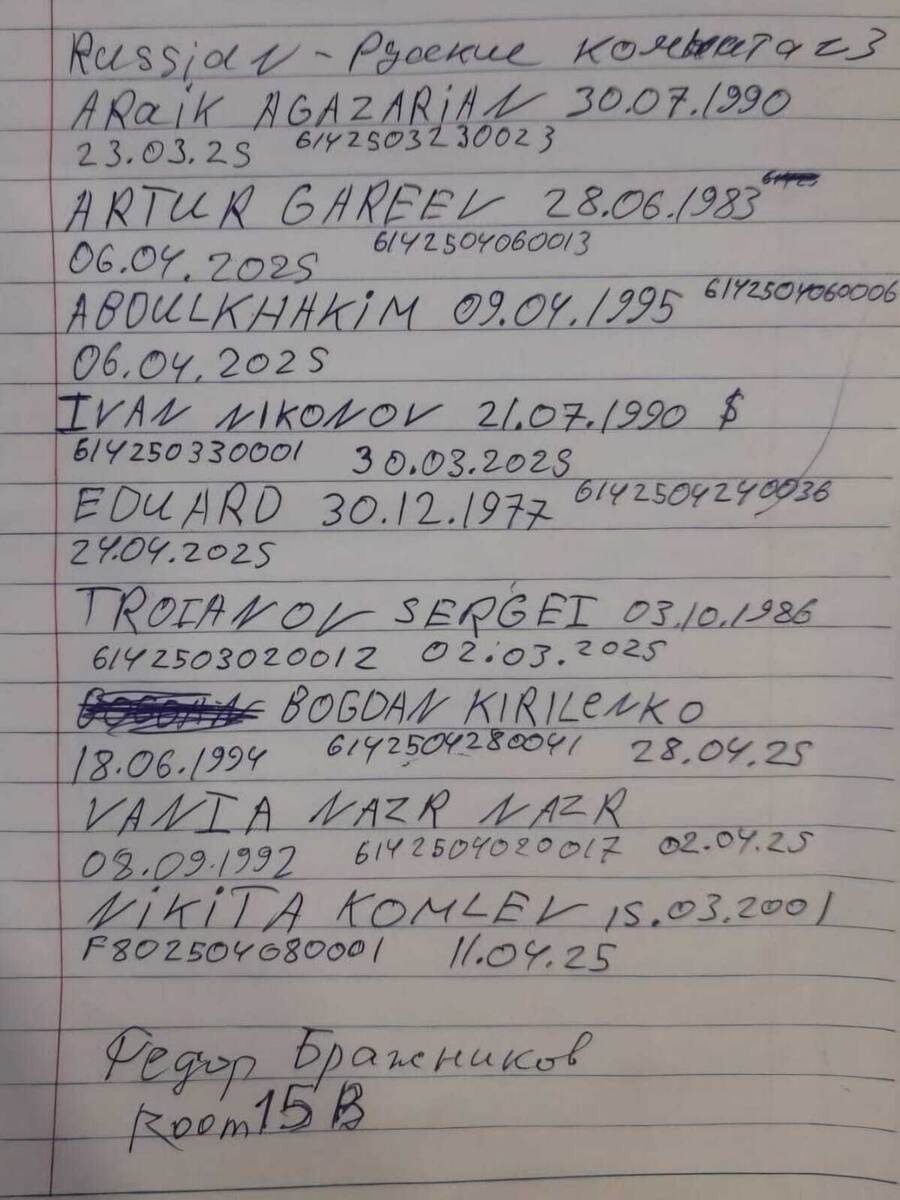 Russian - Русские комната 23
ARAiK AGAZARiAN 30.07.1990
23.03.25 6142503230023
ARTUR GAREEV 28.06.1983
06.04.2025 6142504060013
ABDULKHAKiM 09.04.1995 6142504060006
06.04.2025
IVAN NIKONOV 21.07.1990 $
614250330001 30.03.2025
EDUARD 30.12.1977 6142504240036
24.04.2025
TROIANOV SERGEI 03.10.1986
6142503020012 02.03.2025
BOGDAN KIRILENKO
18.06.1994 6142504280041 28.04.25
VANIA NAZR NAZR
08.09.1992 6142504020017 02.04.25
NiKiTA KOMLEV 15.03.2001
F802504080001 11.04.25
Федор Бражников
Room 15 B